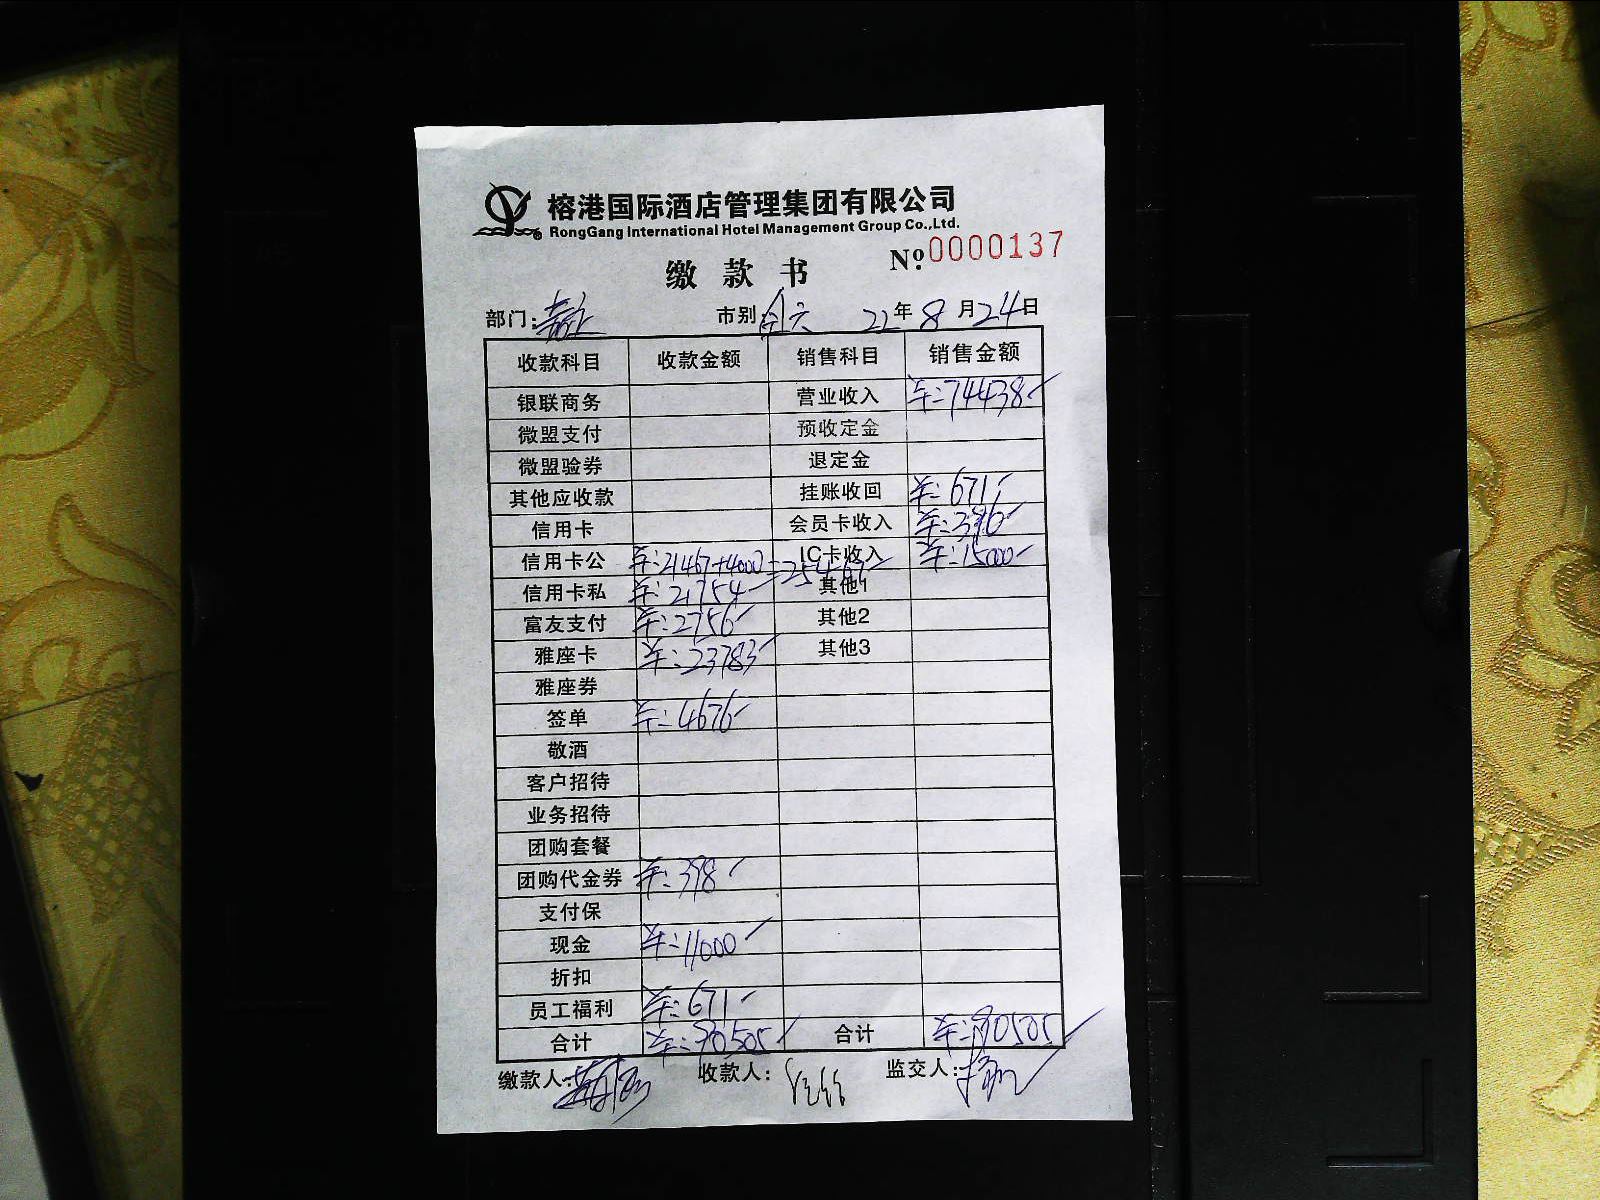 榕港国际酒店管理集团有限公司
RongGang International Hotel Management Group Co.,Ltd.
缴款书 Nº.0000137
部门: 市别: 22年8月24日
收款科目 收款金额 销售科目 销售金额
银联商务 营业收入 ¥:74438
微盟支付 预收定金
微盟验券 退定金
其他应收款 挂账收回 ¥:671
信用卡 会员卡收入 ¥:396
信用卡公 ¥:21467+4000=25467 IC卡收入 ¥:15000
信用卡私 ¥:21754 其他1
富友支付 ¥:2756 其他2
雅座卡 ¥:23783 其他3
雅座券
签单 ¥:4676
敬酒
客户招待
业务招待
团购套餐
团购代金券 ¥:398
支付保
现金 ¥:11000
折扣
员工福利 ¥:671
合计 ¥:90505 合计 ¥:90505
缴款人: 收款人: 监交人: